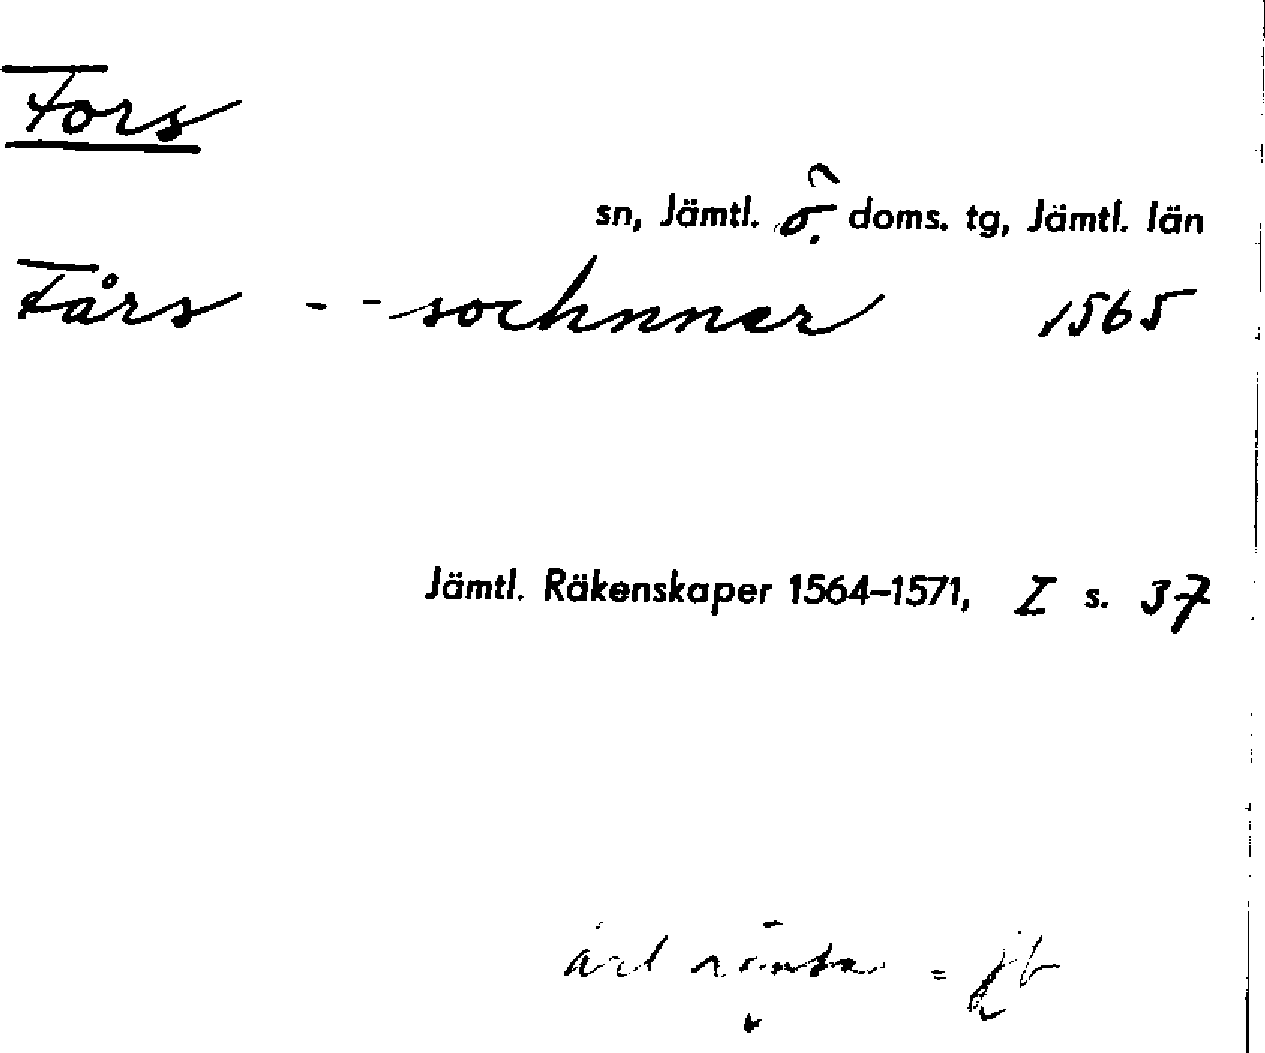 Fors
sn, Jämtl. ö. doms. tg, Jämtl. län
Fårs - - sochnner 1565
Jämtl. Räkenskaper 1564–1571, I s. 37
årl ränta = jb